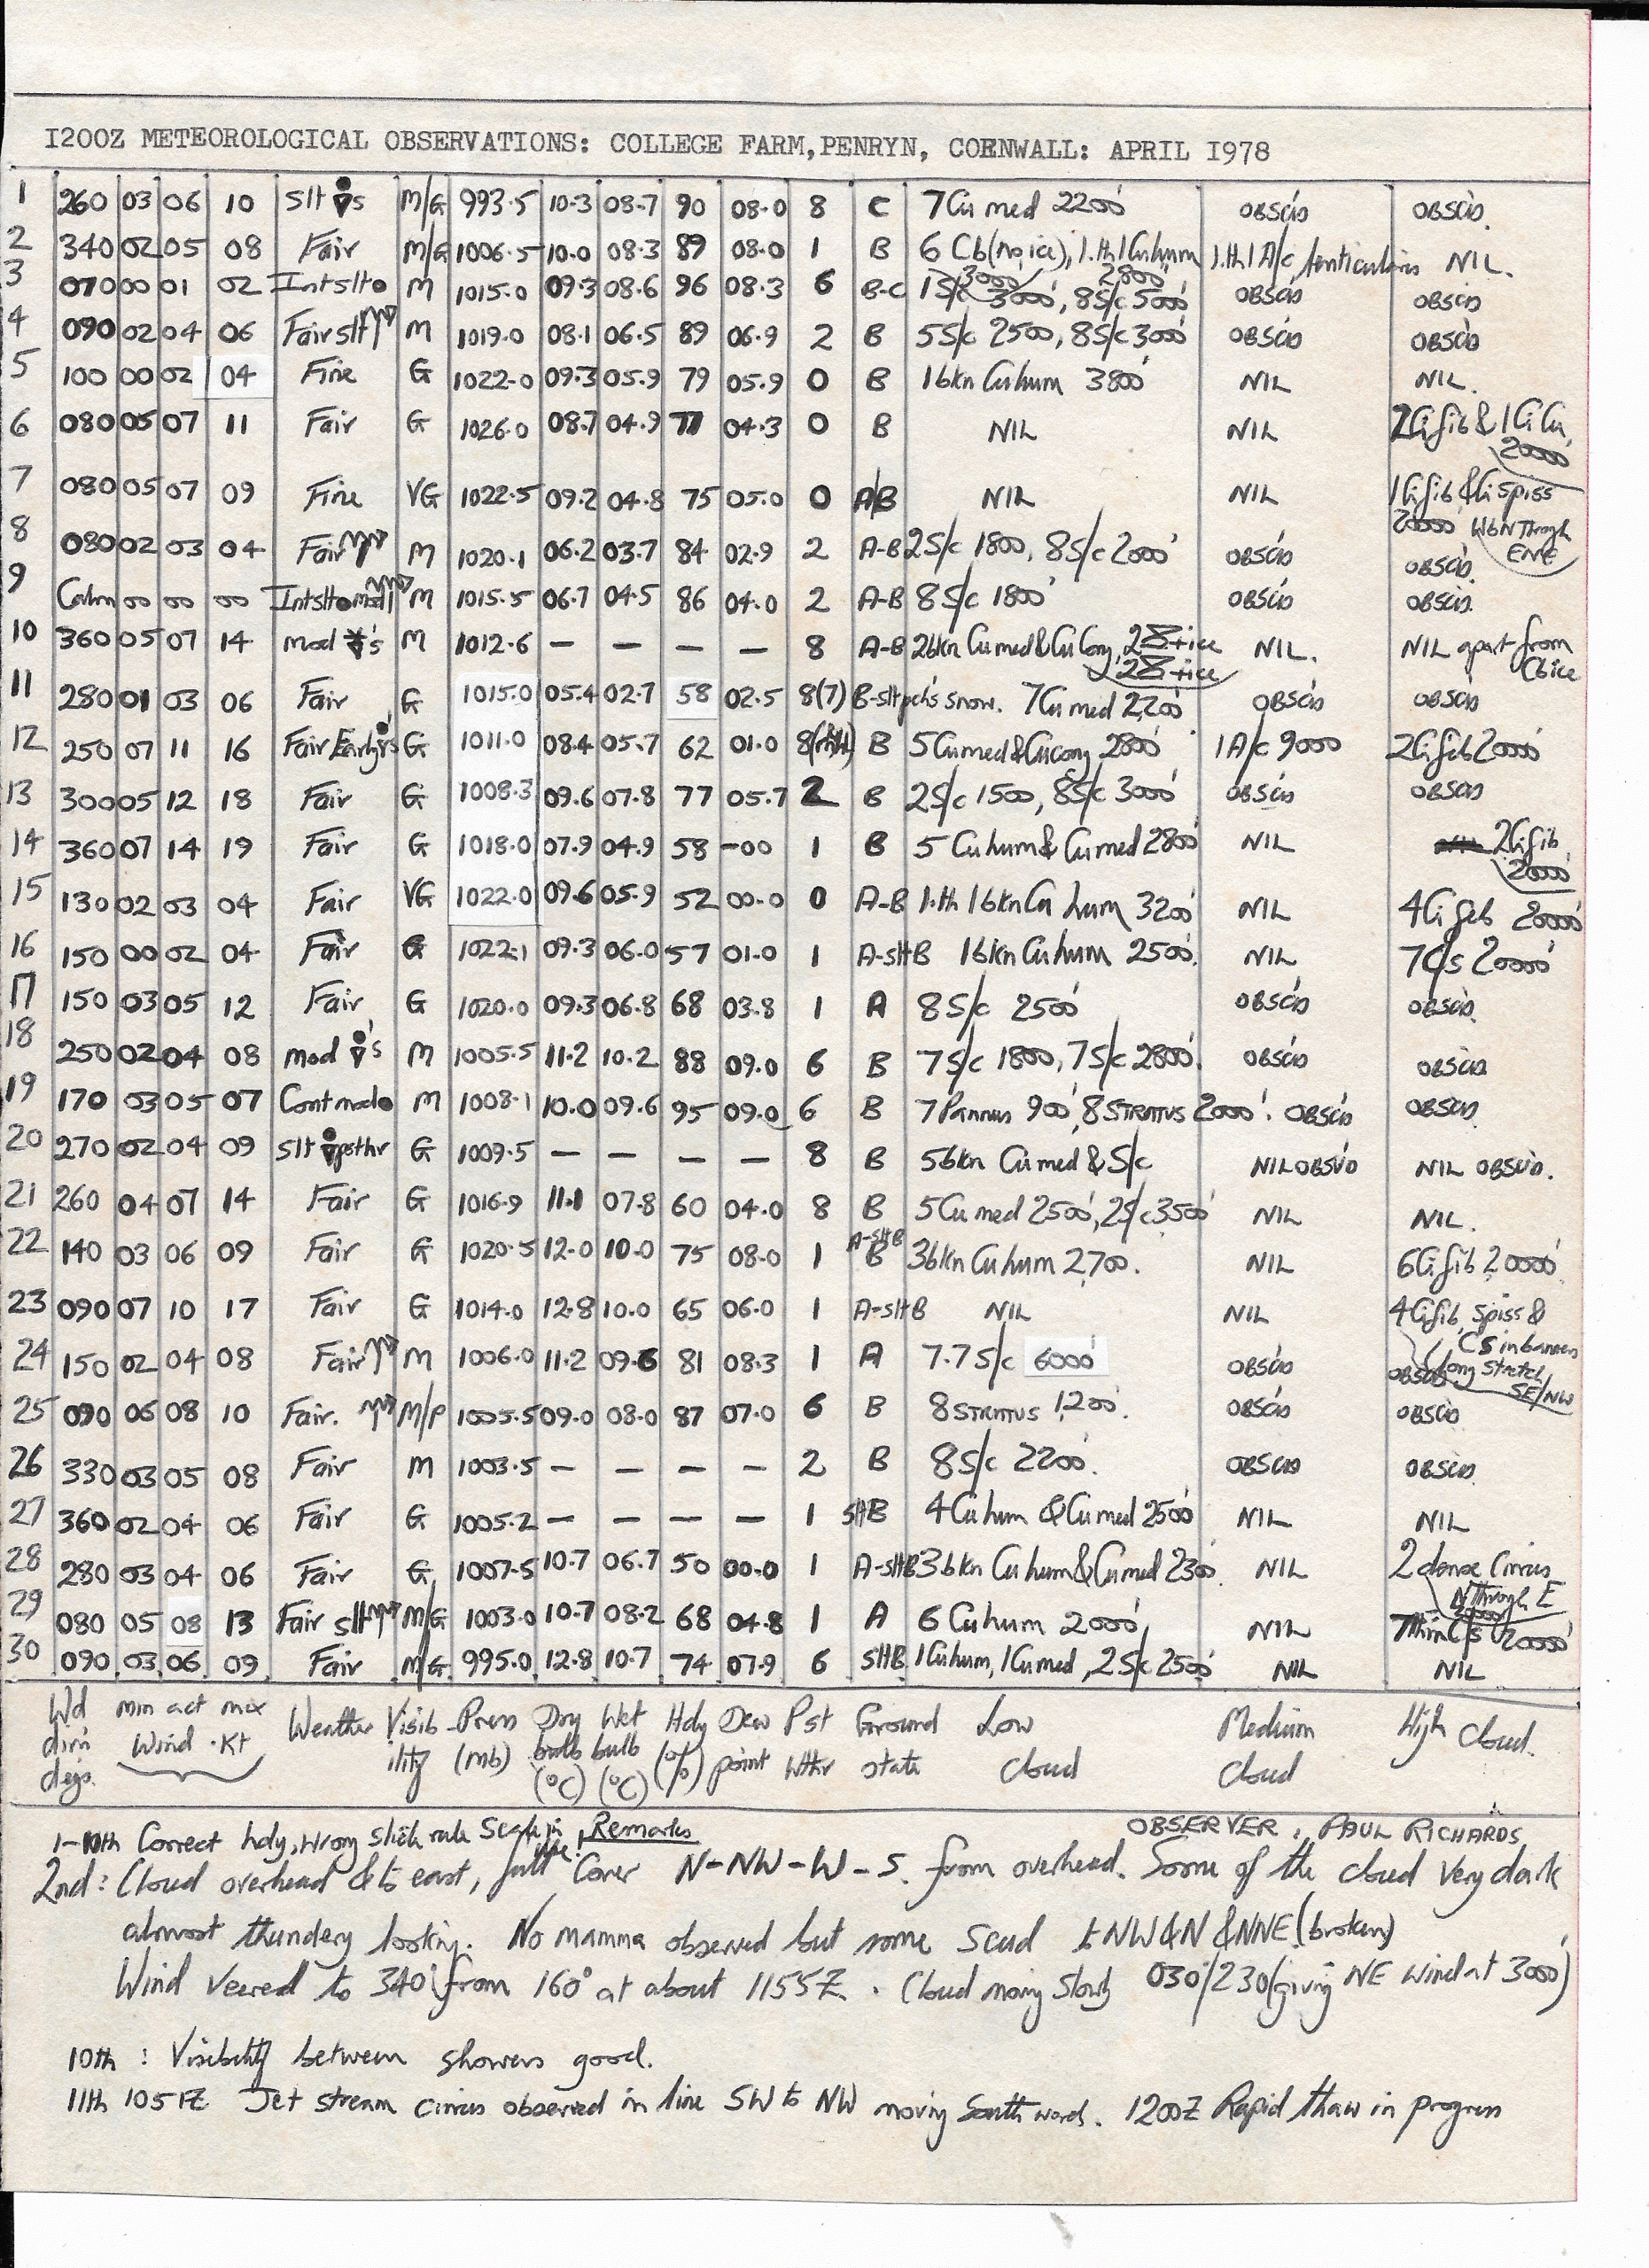 I200Z METEOROLOGICAL OBSERVATIONS: COLLEGE FARM, PENRYN, COENWALL: APRIL I978
1 260 03 06 10 Slt s M/G 993.5 10.3 08.7 90 08.0 8 C 7Cu med 2200' OBSC'D OBSC'D.
2 340 02 05 08 Fair M/G 1006.5 10.0 08.3 89 08.0 1 B 6 Cb(no ice), 1.th 1Cuhum 1.th 1 A/c lenticularis NIL.
3000' 2800'
3 070 00 01 02 Intslt M 1015.0 09.3 08.6 96 08.3 6 B-C 1S/c 3000', 8S/c 5000' OBSC'D OBSC'D
4 090 02 04 06 Fair slt M 1019.0 08.1 06.5 89 06.9 2 B 5S/c 2500, 8S/c 3000' OBSC'D OBSC'D
5 100 00 02 04 Fine G 1022.0 09.3 05.9 79 05.9 0 B 1bkn Cuhum 3800' NIL NIL.
6 080 05 07 11 Fair G 1026.0 08.7 04.9 77 04.3 0 B NIL NIL 2Cifib & 1CiCu,
20000'
7 080 05 07 09 Fine VG 1022.5 09.2 04.8 75 05.0 0 A/B NIL NIL 1Cifib & Cispiss
20000' WbN Through
ENE
8 080 02 03 04 Fair M 1020.1 06.2 03.7 84 02.9 2 A-B 2S/c 1800, 8S/c 2000' OBSC'D OBSC'D.
9 Calm 00 00 00 Intslt mod M 1015.5 06.7 04.5 86 04.0 2 A-B 8S/c 1800' OBSC'D OBSC'D.
10 360 05 07 14 mod 's M 1012.6 — — — — 8 A-B 2bkn Cumed&CuCong, NIL. NIL apart from
Cb ice
11 280 01 03 06 Fair G 1015.0 05.4 02.7 58 02.5 8(7) B-slt pch's snow. 7Cu med 2200' OBSC'D OBSC'D
12 250 07 11 16 Fair Early G 1011.0 08.4 05.7 62 01.0 8 B 5Cumed&Cucong 2800' 1A/c 9000 2Cifib 20000'
13 300 05 12 18 Fair G 1008.3 09.6 07.8 77 05.7 2 B 2S/c 1500, 8S/c 3000' OBSC'D OBSC'D
14 360 07 14 19 Fair G 1018.0 07.9 04.9 58 -00 1 B 5 Cuhum & Cumed 2800' NIL 2Cifib
20000'
15 130 02 03 04 Fair VG 1022.0 09.6 05.9 52 00.0 0 A-B 1.th 1bkn Cu hum 3200' NIL 4Cifib 20000'
16 150 00 02 04 Fair G 1022.1 09.3 06.0 57 01.0 1 A-sltB 1bkn Cuhum 2500'. NIL 7C/s 20000'
17 150 03 05 12 Fair G 1020.0 09.3 06.8 68 03.8 1 A 8S/c 2500' OBSC'D OBSC'D.
18 250 02 04 08 mod 's M 1005.5 11.2 10.2 88 09.0 6 B 7S/c 1800, 7S/c 2800'. OBSC'D OBSC'D
19 170 03 05 07 Contmod M 1008.1 10.0 09.6 95 09.0 6 B 7Pannus 900', 8STRATUS 2000'. OBSC'D OBSC'D.
20 270 02 04 09 slt psthr G 1009.5 — — — — 8 B 5bkn Cumed & S/c NIL OBSV'D NIL OBSV'D.
21 260 04 07 14 Fair G 1016.9 11.1 07.8 60 04.0 8 B 5Cumed 2500', 2S/c 3500' NIL NIL.
22 140 03 06 09 Fair G 1020.5 12.0 10.0 75 08.0 1 A-sltB B 3bkn Cuhum 2,700. NIL 6Cifib 20000'
23 090 07 10 17 Fair G 1014.0 12.8 10.0 65 06.0 1 A-sltB NIL NIL 4Cifib, spiss &
Cs in banners
long stretch
SE/NW
24 150 02 04 08 Fair M 1006.0 11.2 09.6 81 08.3 1 A 7.7S/c 6000' OBSC'D OBSC'D
25 090 06 08 10 Fair. M/P 1005.5 09.0 08.0 87 07.0 6 B 8STRATUS 1,200'. OBSC'D OBSC'D
26 330 03 05 08 Fair M 1003.5 — — — — 2 B 8S/c 2200'. OBSC'D OBSC'D.
27 360 02 04 06 Fair G 1005.2 — — — — 1 sltB 4Cuhum & Cumed 2500' NIL NIL
28 280 03 04 06 Fair G 1007.5 10.7 06.7 50 00.0 1 A-sltB 3bkn Cuhum&Cumed 2300'. NIL 2 dense Cirrus
N Through E
20000'
29 080 05 08 13 Fair slt M/G 1003.0 10.7 08.2 68 04.8 1 A 6 Cuhum 2000', NIL 7thinC/s 20000'
30 090 03 06 09 Fair M/G 995.0 12.8 10.7 74 07.9 6 sltB 1Cuhum, 1Cumed, 2S/c 2500' NIL NIL
Wd min act max Weather Visib Press Dry Wet Hdy Dew Pst Ground Low Medium High Cloud.
dirn Wind .Kt ility (mb) bulb bulb (%) point Wthr state cloud Cloud
degs. (°C) (°C)
1-10th Correct hdy, wrong slide rule Scale in use! Remarks OBSERVER, PAUL RICHARDS,
2nd: Cloud overhead & to east, full Cover N-NW-W-S. from overhead. Some of the cloud very dark
almost thundery looking. No mamma observed but some Scud to NW&N &NNE (broken)
Wind Veered to 340° from 160° at about 1155Z. Cloud moving slowly 030°/230 (giving NE wind at 3000')
10th: Visibility between showers good.
11th 1051Z Jet stream cirrus observed in line SW to NW moving Southwards. 1200Z Rapid thaw in progress